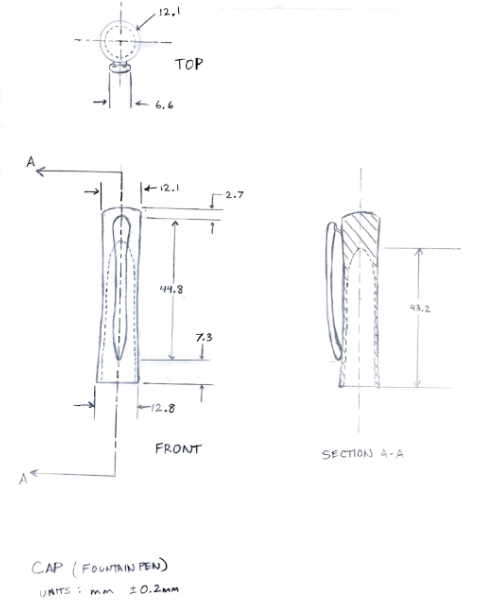 12.1
TOP
6.6
A
12.1
2.7
44.8
7.3
43.2
12.8
FRONT
SECTION A-A
A
CAP (FOUNTAIN PEN)
UNITS: mm ±0.2mm